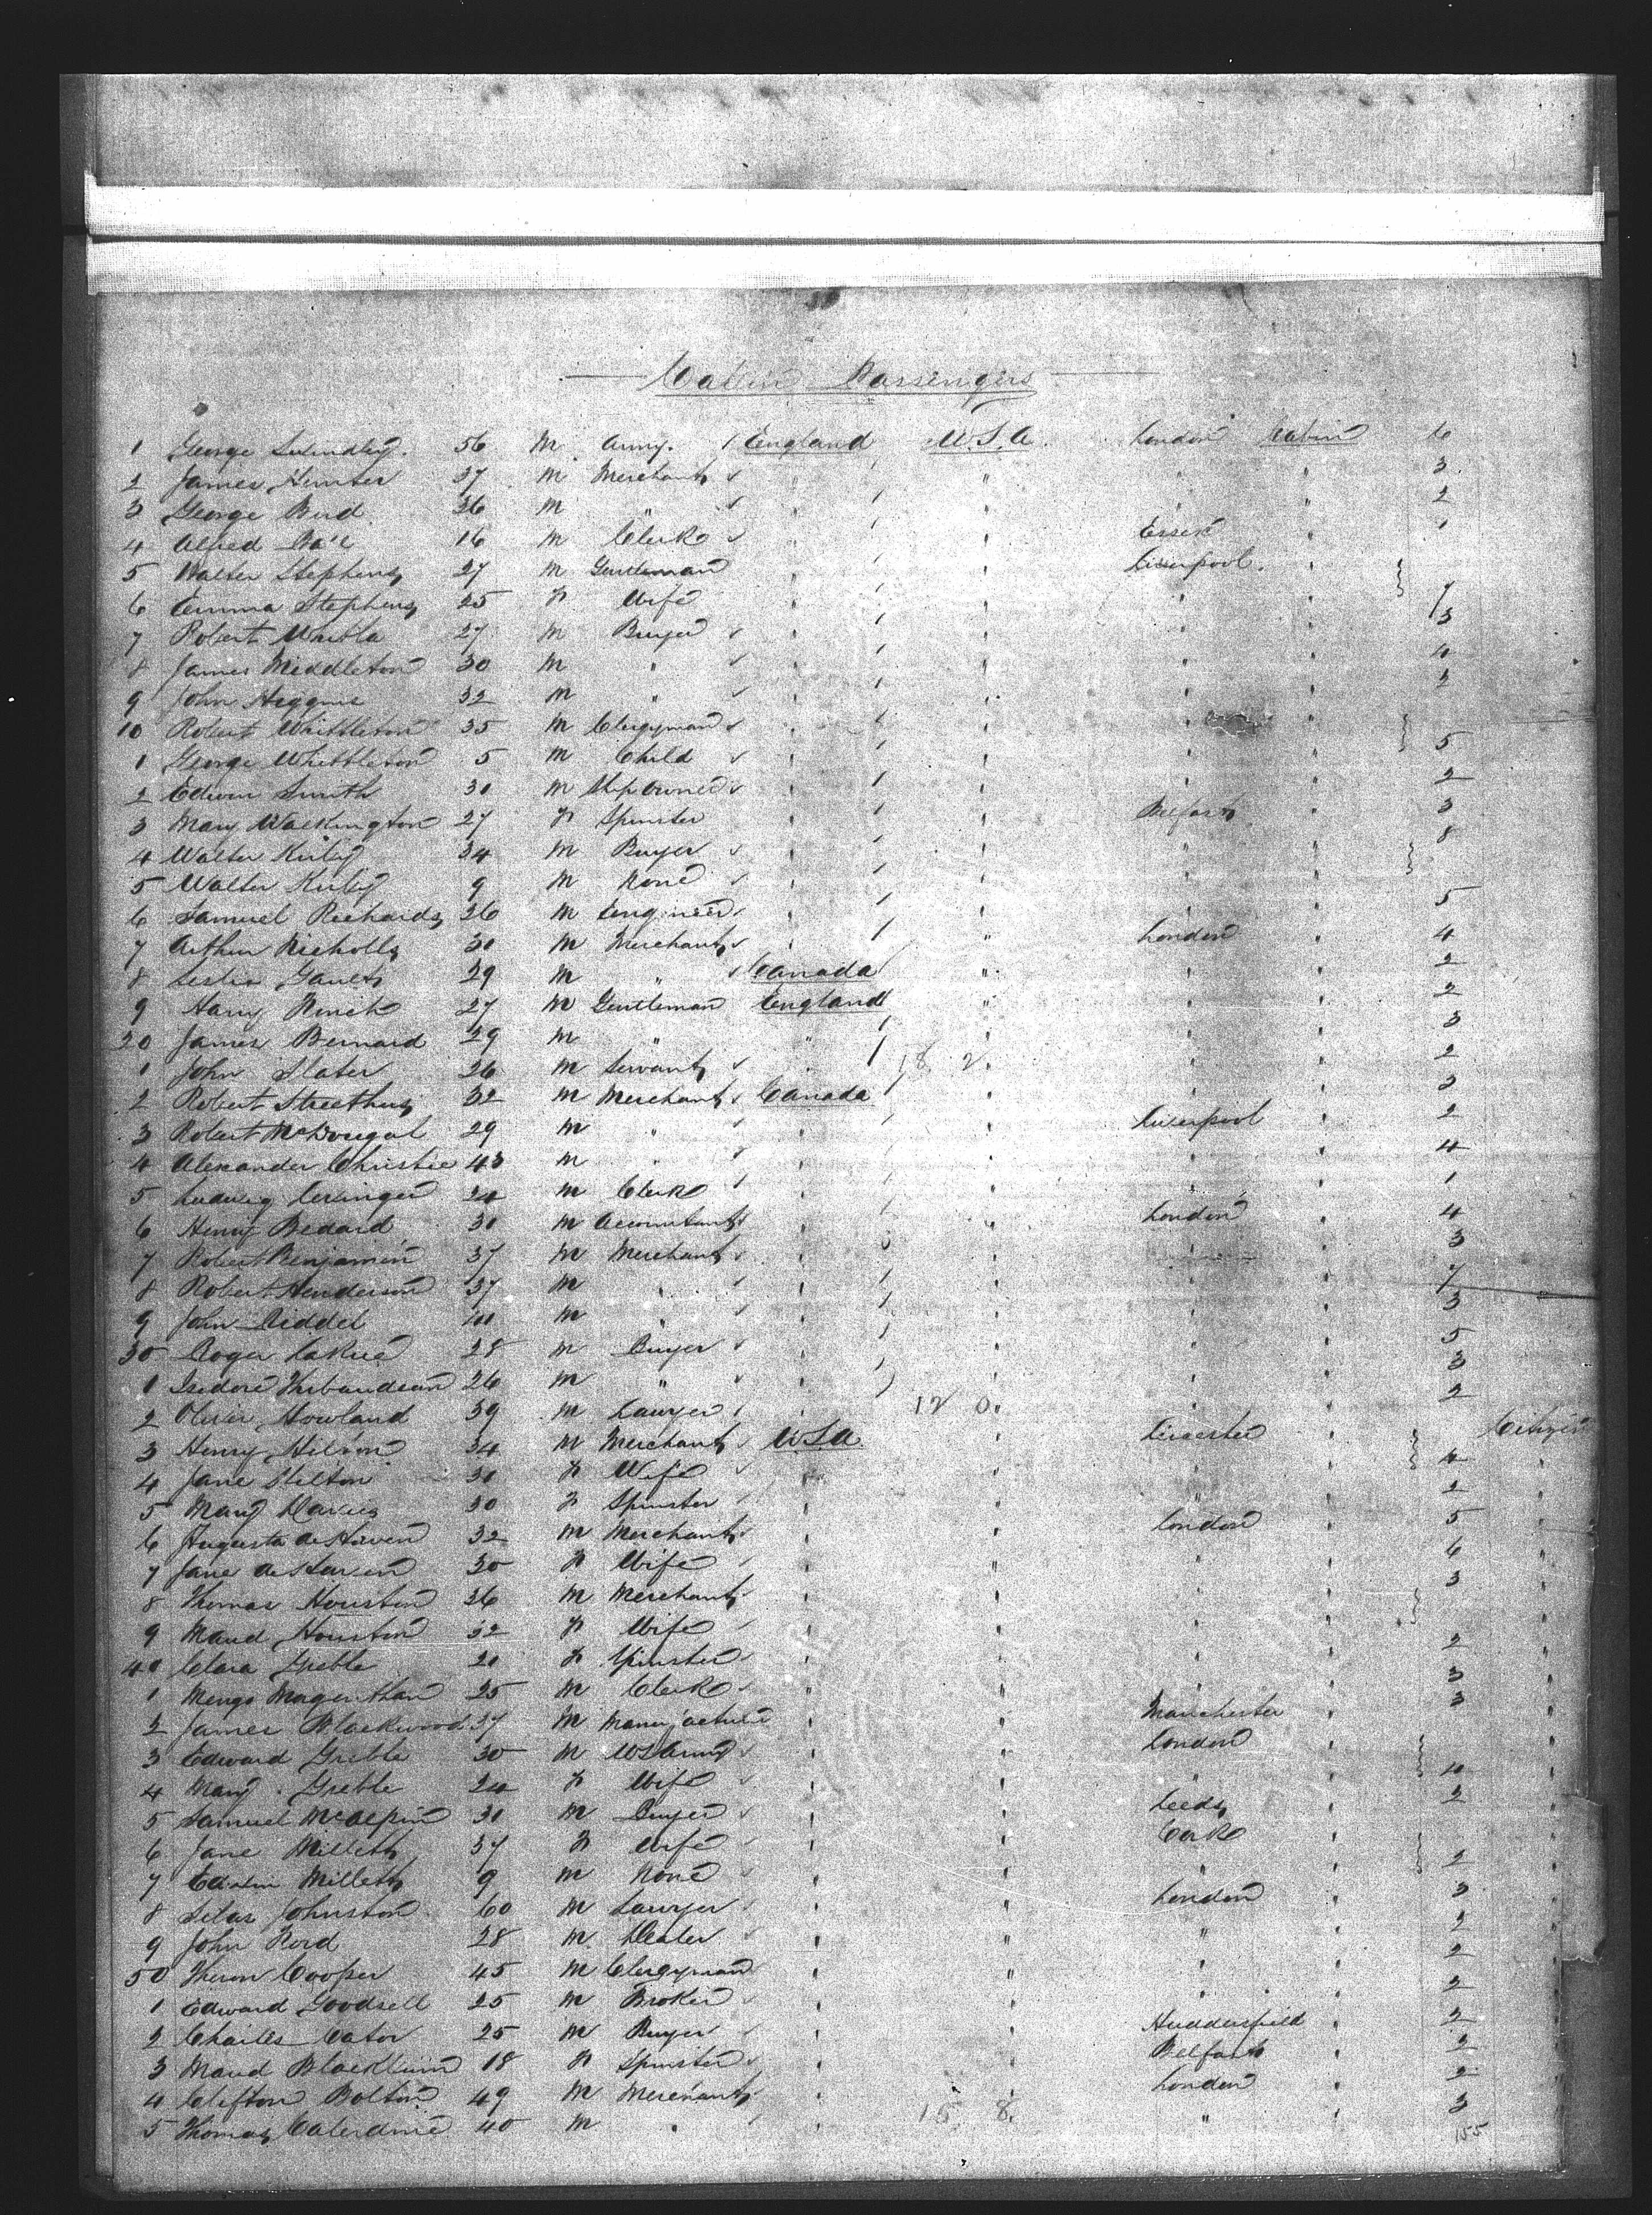 Cabin Passengers
1 George 56 M Army. England U.S.A. London Cabin 6
2 James Hunter 37 M Merchant " " " " 3
3 George Bird 26 M " " " " " 2
4 Alfred 16 M Clerk " " Essex " 1
5 Walter Stephens 27 M Gentleman " " Liverpool. "
6 Emma Stephens 25 F Wife " " " " 7
7 Robert 27 M Buyer " " " " 3
8 James Middleton 30 M " " " " " 4
9 John Higgins 32 M " " " " " 2
10 Robert Whittleton 35 M Clergyman " " " "
1 George Whittleton 5 M Child " " " " 5
2 Edwin Smith 30 M Ship Owner " " " " 2
3 Mary Walkington 27 F Spinster " " Belfast " 3
4 Walter Kirby 34 M Buyer " " " " 8
5 Walter Kirby 9 M None " " " "
6 Samuel Richards 26 M Engineer " " " " 5
7 Arthur Nicholls 30 M Merchant " " London " 4
8 Leslie Gault 29 M " Canada " " " 2
9 Harry 27 M Gentleman England " " " 2
20 James Bernard 29 M " " " " " 3
1 John Slater 26 M Servant " 18 2. " " " 2
2 Robert 32 M Merchant Canada " " " 3
3 Robert McDougal 29 M " " " Liverpool " 2
4 Alexander Christie 43 M " " " " " 4
5 Ludwig 24 M Clerk " " " " 1
6 Henry Bedard 30 M Accountant " " London " 4
7 Robert Benjamin 37 M Merchant " " " " 3
8 Robert Henderson 37 M " " " " " 7
9 John Liddel M " " " " " 3
30 Roger 28 M Buyer " " " " 5
1 Isidore Thibaudeau 26 M " " " " " 3
2 Oliver Howland 39 M Lawyer " 12 0. " " " 2
3 Henry Hilton 34 M Merchant U.S.A. " Leicester " Citizen
4 Jane Hilton 30 F Wife " " " " 4 "
5 Mary Davies 30 F Spinster " " " " 2 "
6 Augusta de Haven 32 M Merchant " " London " 5 "
7 Jane de Haven 30 F Wife " " " " 6 "
8 Thomas Houston 36 M Merchant " " " " 3 "
9 Maud Houston 32 F Wife " " " " "
40 Clara Greble 20 F Spinster " " " " 2 "
1 25 M Clerk " " " " 3 "
2 James Blackwood 37 M Manufacturer " " Manchester " 3 "
3 Edward Greble 30 M US Army " " London " "
4 Mary Greble 24 F Wife " " " " 4 "
5 Samuel McAlpin 30 M Buyer " " Leeds " 2 "
6 Jane Millett 37 F Wife " " Cork " "
7 Edwin Millett 9 M None " " " " 2 "
8 Silas Johnston 60 M Lawyer " " London " 3 "
9 John 28 M Dealer " " " " 2 "
50 Theron Cooper 45 M Clergyman " " " " 2 "
1 Edward Goodsell 25 M Broker " " " " 2 "
2 Charles Cator 25 M Buyer " " Huddersfield " 2 "
3 Maud Blackburn 18 F Spinster " " Belfast " 2 "
4 Clifton Bolton 49 M Merchant " " London " 2 "
5 Thomas 40 M " " 15 8. " " 3 "
155